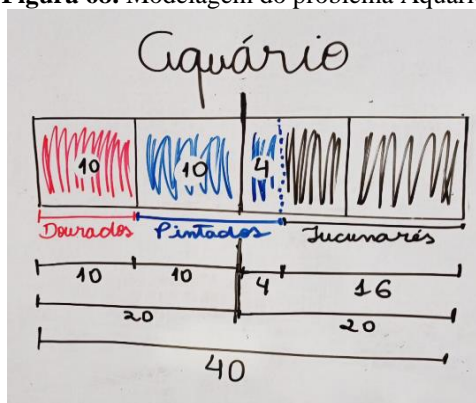 Figura 68. Modelagem do problema Aquári
Aquário
10 10 4
Dourados Pintados Tucunarés
10 10 4 16
20 20
40